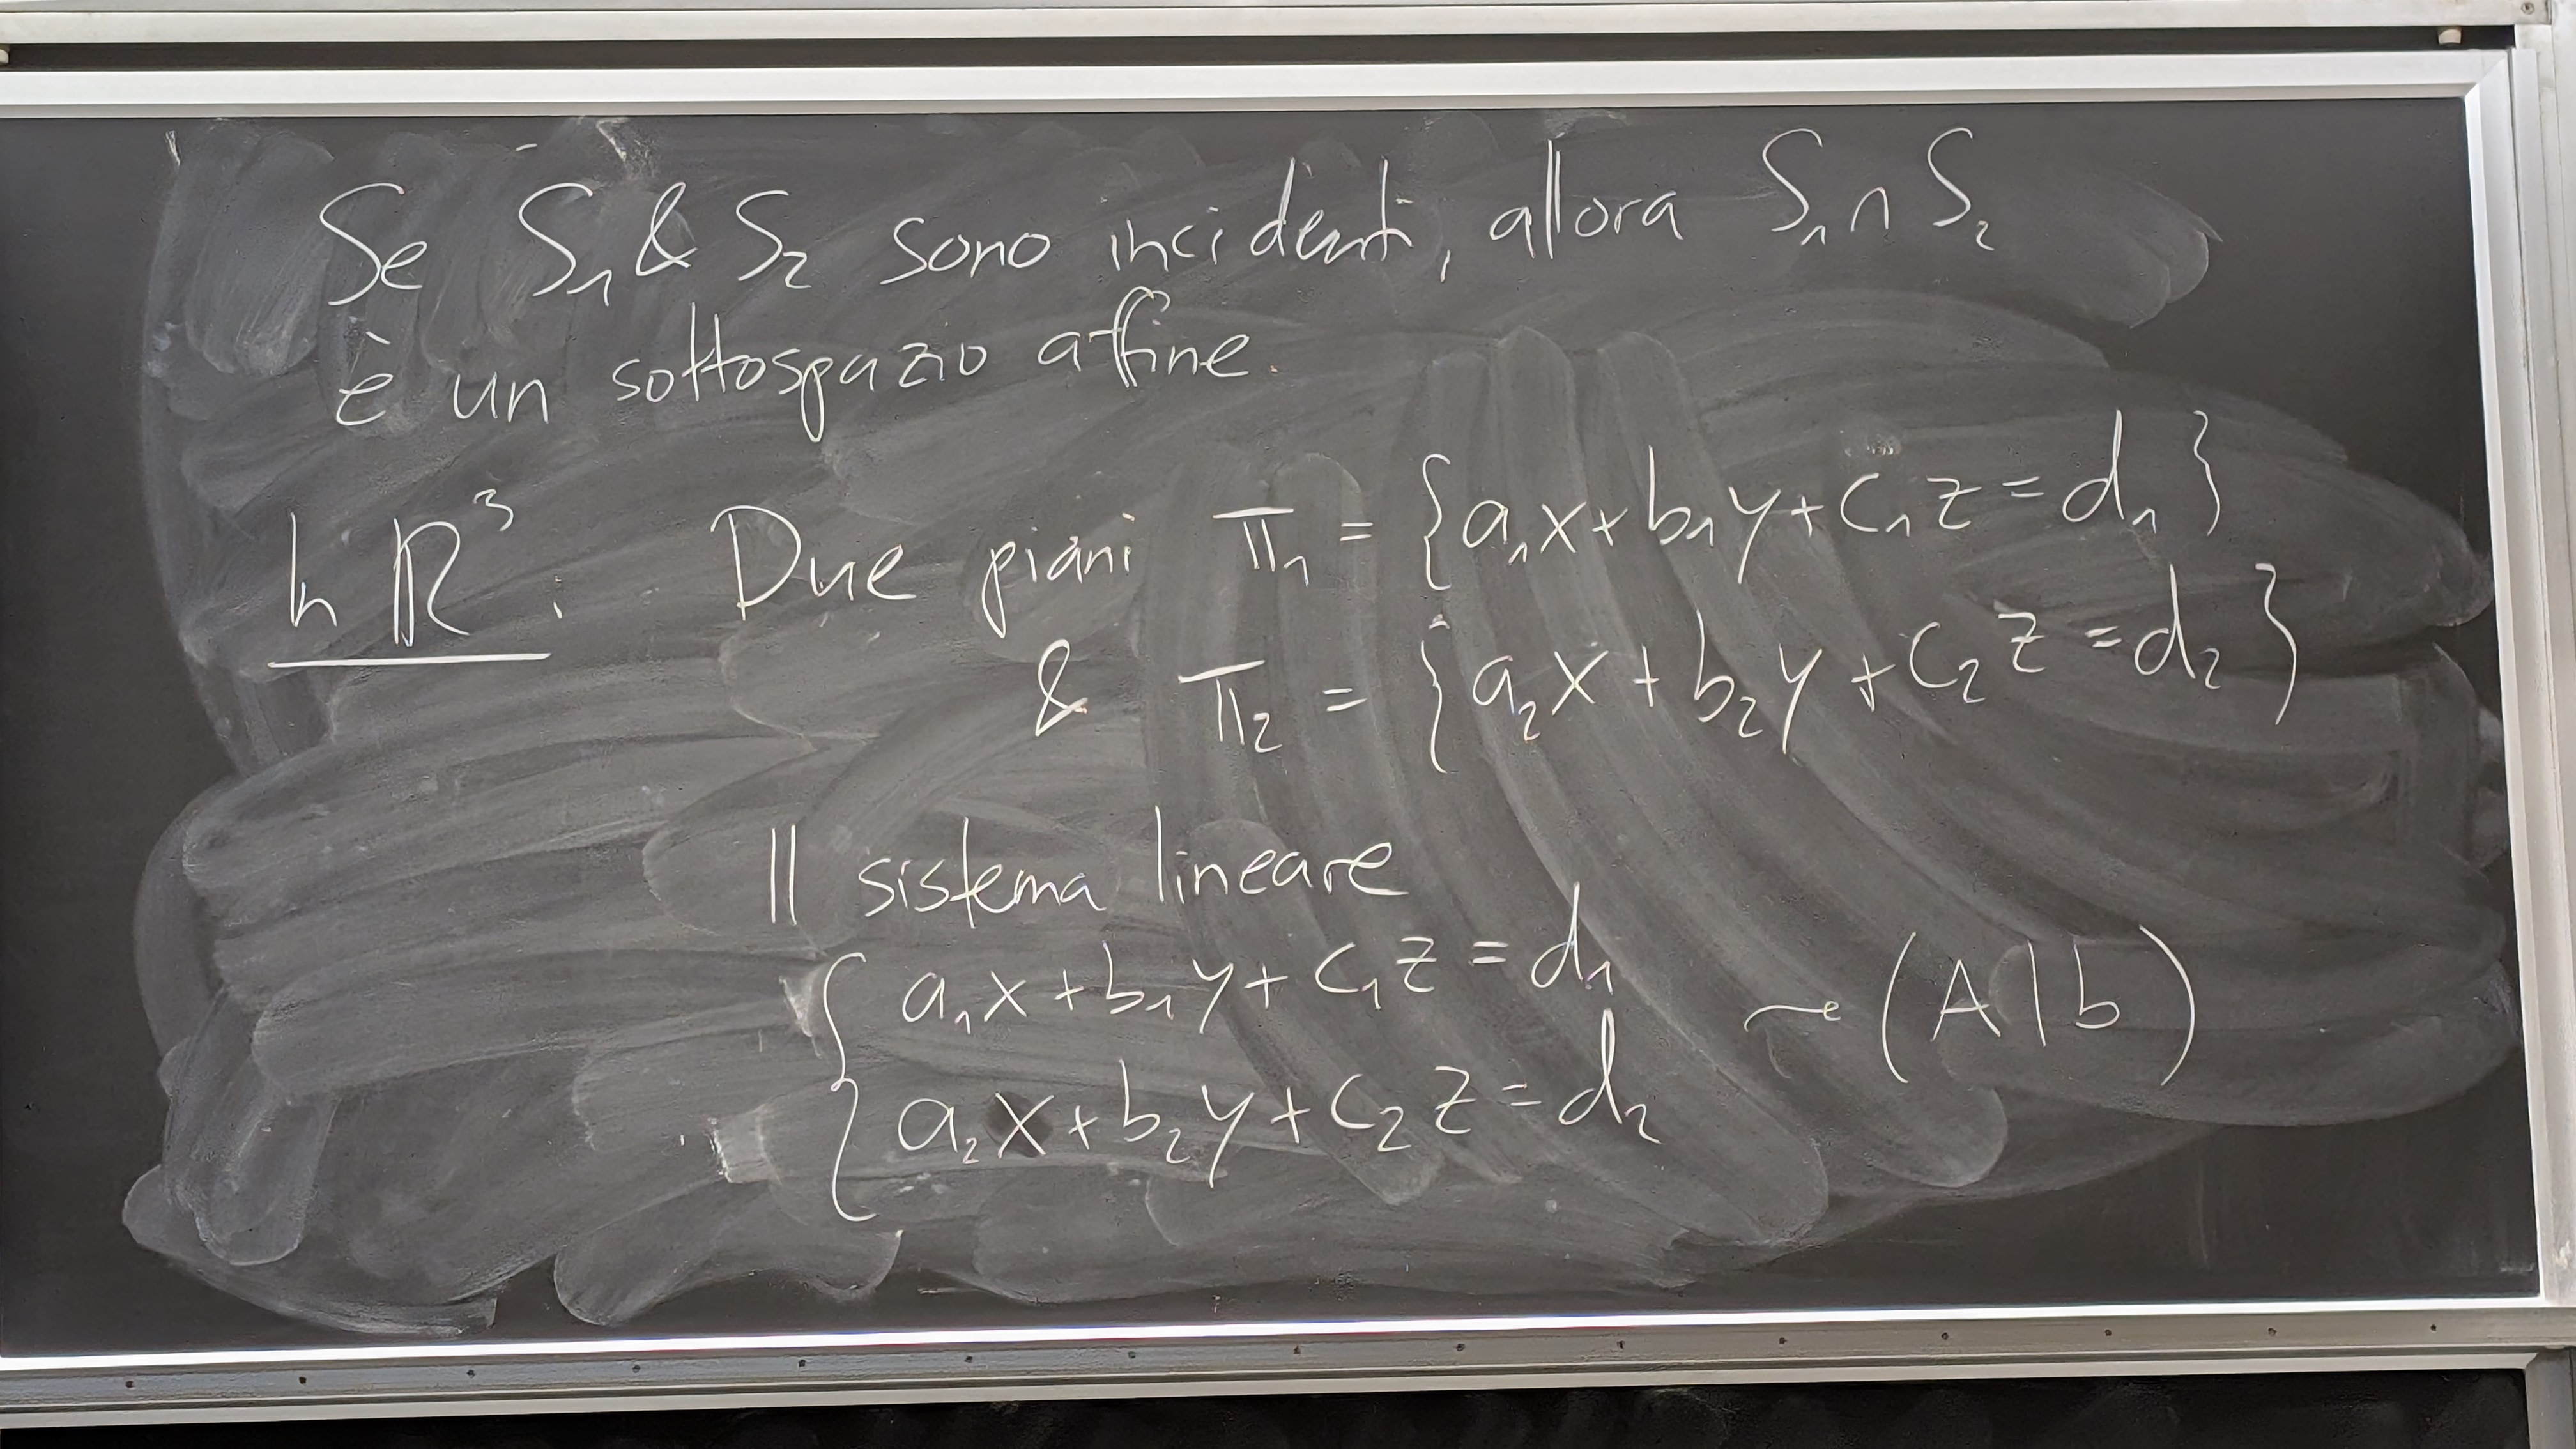 Se S₁ & S₂ sono incidenti, allora S₁ ∩ S₂
è un sottospazio affine.
In ℝ³: Due piani π₁ = {a₁x + b₁y + c₁z = d₁}
& π₂ = {a₂x + b₂y + c₂z = d₂}
Il sistema lineare
{ a₁x + b₁y + c₁z = d₁ ⇝ (A|b)
{ a₂x + b₂y + c₂z = d₂